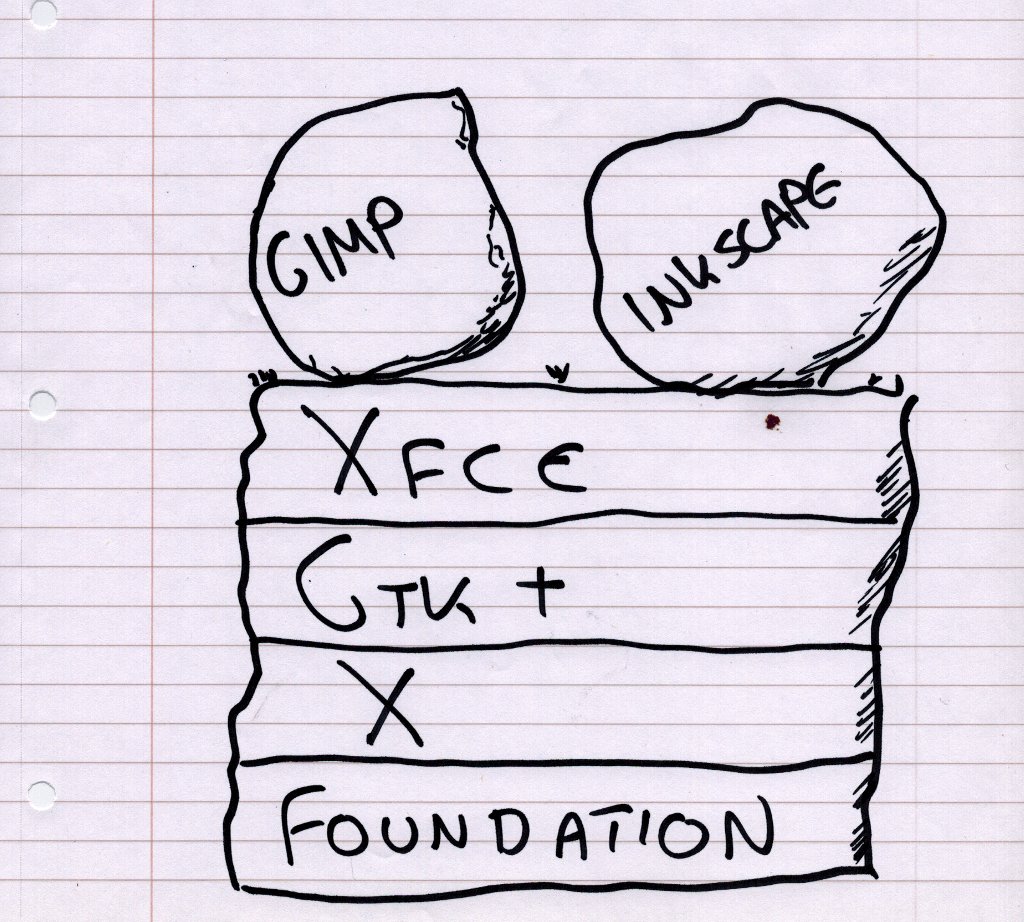 GIMP
INKSCAPE
XFCE
GTK +
X
FOUNDATION